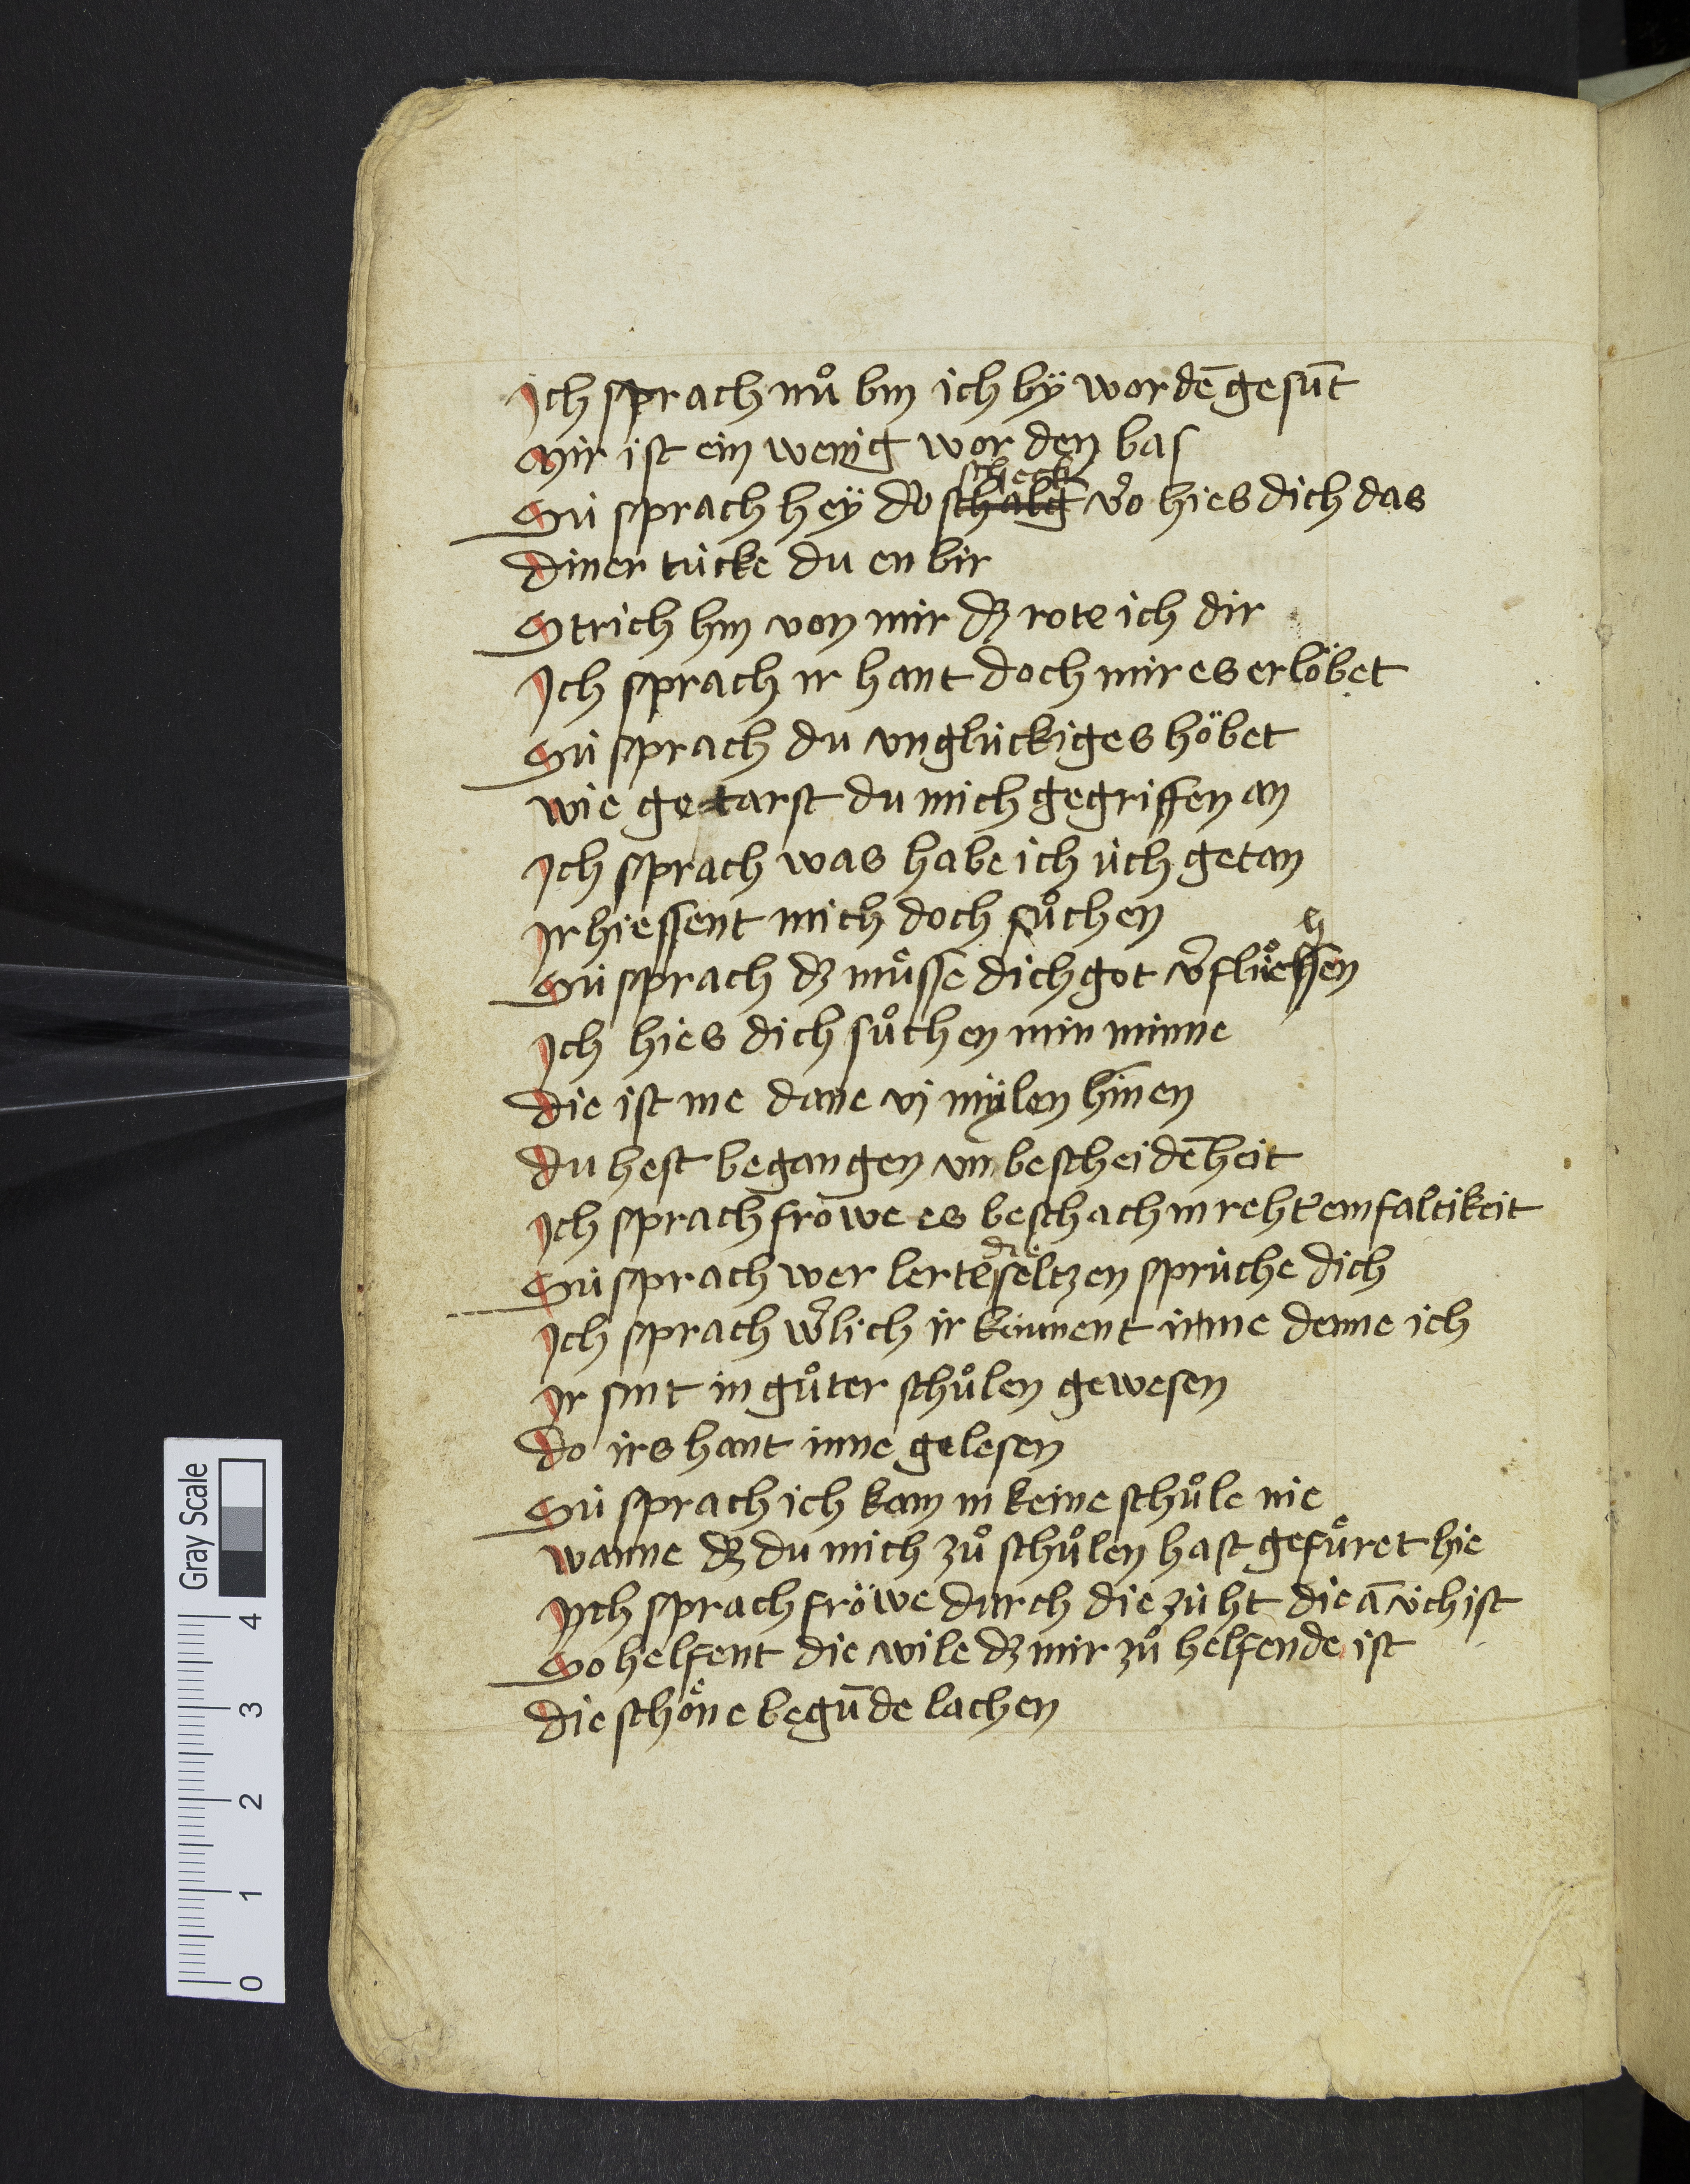 Ich sprach nuͦ bin ich by wordē gesūt
Mir ist ein wenig worden bas
scheck
Sú sprach hey do schalg wo hies dich das
Diner túcke du en bir
Strich hin von mir dz rote ich dir
Ich sprach ir hant doch mir es erlöbet
Sú sprach du unglúckiges höbet
Wie getarst du mich gegriffen an
Ich sprach was habe ich úch getan
Ir hiessent mich doch suͦchen
Sú sprach dz muͤsse dich got v͛fluͦchen
Ich hies dich suͦchen min minne
Die ist me dane vj mylen hinnen
Du hest begangen unbescheidēheit
Ich sprach fröwe es beschach in reht͛ einfaltikeit
die
Sú sprach wer lerte seltzen sprúche dich
Ich sprach w͛lich ir kúnnent ir me denne ich
Ir sint in guͦter schuͦlen gewesen
Do irs hant inne gelesen
Sú sprach ich kam in keine schuͦle nie
Wanne dz du mich zuͦ schuͦlen hast gefuͤret hie
Ich sprach fröwe durch die zúht die ā úch ist
So helfent die wile dz mir zuͦ helfende ist
Die schoͤne begūde lachen
Gray Scale
0 1 2 3 4